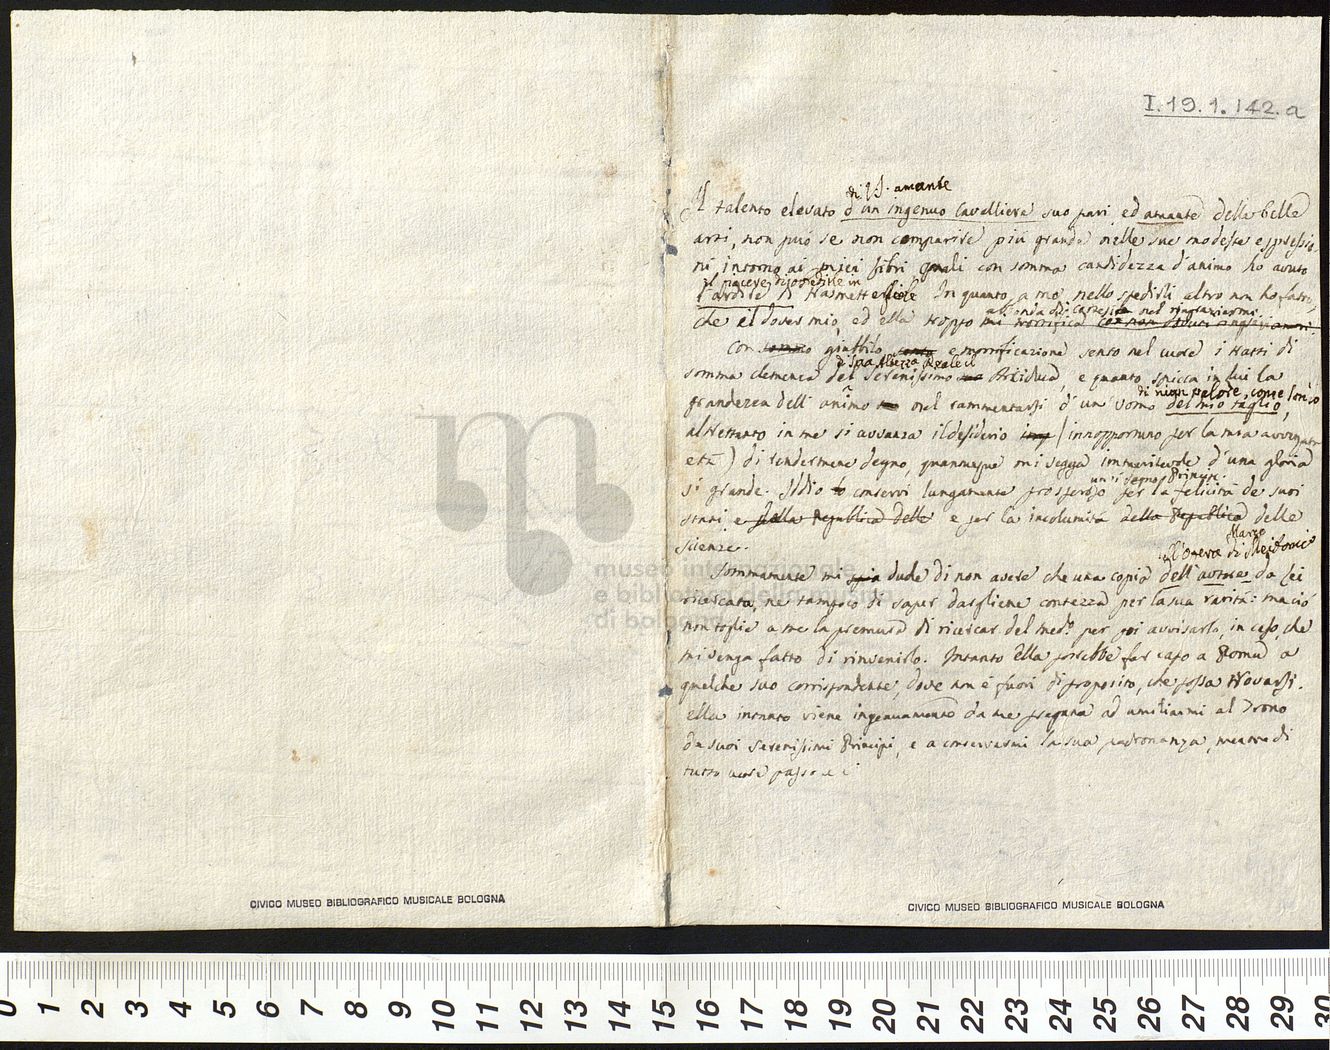 I.19.1.142.a
di V.S. amante
Il talento elevato d'un ingenuo Cavalliere suo pari, ed amante delle belle
arti, non può se non comparire più grande nelle sue modeste espressio-
ni intorno ai miei libri quali con somma candidezza d'animo ho avuto
il piacere in
l'ardire di trasmetterle. In quanto a me nello spedirli altro non ho fatto,
che il dover mio, ed ella troppo mi mortifica
Con sommo giubbilo e mortificazione sento nel cuore i tratti di
di Sua Altezza Reale il
somma clemenza del Serenissimo Arciduca, e quanto spicca in lui la
di niun valore, come son io
grandezza dell'animo nel rammentarsi d'un Uomo del mio taglio,
altrettanto in me si avvanza il desiderio (innopportuno per la mia avvanzata
età) di rendermene degno, quantunque mi vegga immeritevole d'una gloria
un sì degno Principe
sì grande. Iddio lo conservi lungamente prosperoso per la felicità de suoi
stati e della Republica delle e per la incolumità della Republica delle
scienze.
Marco
l'opera di Meibomio
Sommamente mi spia dude di non avere che una copia dell'autore da Lei
ricercata, ne tampoco di saper dargliene contezza per la sua rarità: ma ciò
non toglie a me la premura di ricercar del med.º per poi avvisarlo, in caso che
mi venga fatto di rinvenirlo. Intanto Ella potrebbe far capo a Roma a
qualche suo corrispondente, dove non è fuori di proposito, che possa trovarsi.
Ella intanto viene ingenuamente da me pregata ad umiliarmi al Trono
da suoi Serenissimi Principi, e a conservarmi la sua padronanza, mentre di
tutto cuore passo a
museo internazionale
e biblioteca della musica
di bologna
CIVICO MUSEO BIBLIOGRAFICO MUSICALE BOLOGNA
CIVICO MUSEO BIBLIOGRAFICO MUSICALE BOLOGNA
0 1 2 3 4 5 6 7 8 9 10 11 12 13 14 15 16 17 18 19 20 21 22 23 24 25 26 27 28 29 30